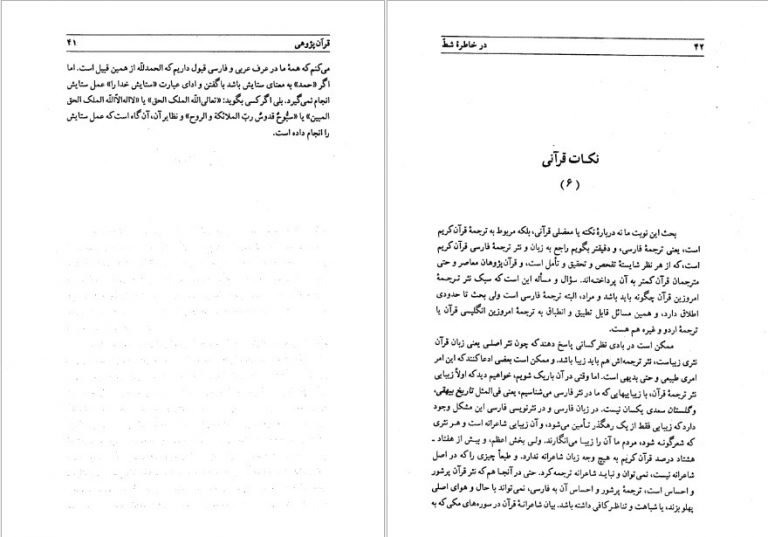 قرآن‌پژوهی ۴۱
می‌کنم که همهٔ ما در عرف عربی و فارسی قبول داریم که الحمدللّه از همین قبیل است. اما
اگر «حمد» به معنای ستایش باشد با گفتن و ادای عبارت «ستایش خدا را» عمل ستایش
انجام نمی‌گیرد. بلی اگر کسی بگوید: «تعالی‌اللّه الملک الحق» یا «لااله‌الااللّه الملک الحق
المبین» یا «سبُّوحٌ قدوسٌ ربّ الملائکة و الروح» و نظایر آن، آن گاه است که عمل ستایش
را انجام داده است.
۴۲ در خاطرهٔ شطّ
نکات قرآنی
(۶)
بحث این نوبت ما نه دربارهٔ نکته یا معضلی قرآنی، بلکه مربوط به ترجمهٔ قرآن کریم
است، یعنی ترجمهٔ فارسی، و دقیقتر بگویم راجع به زبان و نثر ترجمهٔ فارسی قرآن کریم
است، که از هر نظر شایستهٔ تفحص و تحقیق و تأمل است، و قرآن‌پژوهان معاصر و حتی
مترجمان قرآن کمتر به آن پرداخته‌اند. سؤال و مسأله این است که سبک نثر ترجمهٔ
امروزین قرآن چگونه باید باشد و مراد، البته ترجمهٔ فارسی است ولی بحث تا حدودی
اطلاق دارد، و همین مسائل قابل تطبیق و انطباق به ترجمهٔ امروزین انگلیسی قرآن یا
ترجمهٔ اردو و غیره هم هست.
ممکن است در بادی نظر کسانی پاسخ دهند که چون نثر اصلی یعنی زبان قرآن
نثری زیباست، نثر ترجمه‌اش هم باید زیبا باشد. و ممکن است بعضی ادعا کنند که این امر
امری طبیعی و حتی بدیهی است. اما وقتی در آن باریک شویم، خواهیم دید که اولاً زیبایی
نثر ترجمهٔ قرآن، با زیبایهایی که ما در نثر فارسی می‌شناسیم، یعنی فی‌المثل تاریخ بیهقی،
و گلستان سعدی یکسان نیست. در زبان فارسی و در نثرنویسی فارسی این مشکل وجود
دارد که زیبایی فقط از یک رهگذر تأمین می‌شود، و آن زیبایی شاعرانه است و هر نثری
که شعرگونه شود، مردم ما آن را زیبا می‌انگارند. ولی بخش اعظم، و بیش از هفتاد ـ
هشتاد درصد قرآن کریم به هیچ وجه زبان شاعرانه ندارد. و طبعاً چیزی را که در اصل
شاعرانه نیست، نمی‌توان و نباید شاعرانه ترجمه کرد. حتی در آنجا هم که نثر قرآن پرشور
و احساس است، ترجمهٔ پرشور و احساس آن به فارسی، نمی‌تواند با حال و هوای اصلی
پهلو بزند، یا شباهت و تناظر کافی داشته باشد. بیان شاعرانهٔ قرآن در سوره‌های مکی که به